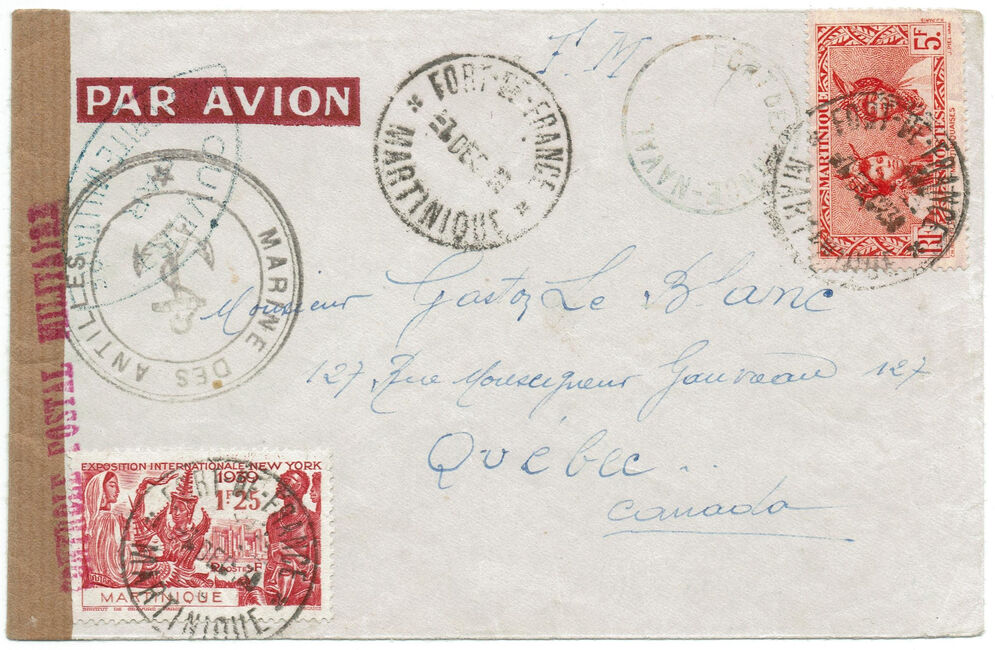 PAR AVION
F.M
FORT-DE-FRANCE
DEC
MARTINIQUE
FORT DE
NAVAL
5F
MARTINIQUE
POSTES
RF
FORT-DE-FRANCE
MARTINIQUE
MARINE DES ANTILLES
CONTROLE POSTAL MILITAIRE
Monsieur Gaston Le Blanc
127 Rue Monseigneur Gauvreau 127
Québec..
Canada
EXPOSITION INTERNATIONALE NEW YORK
1939
1F25
POSTES
RF
MARTINIQUE
FORT-DE-FRANCE
DEC
MARTINIQUE